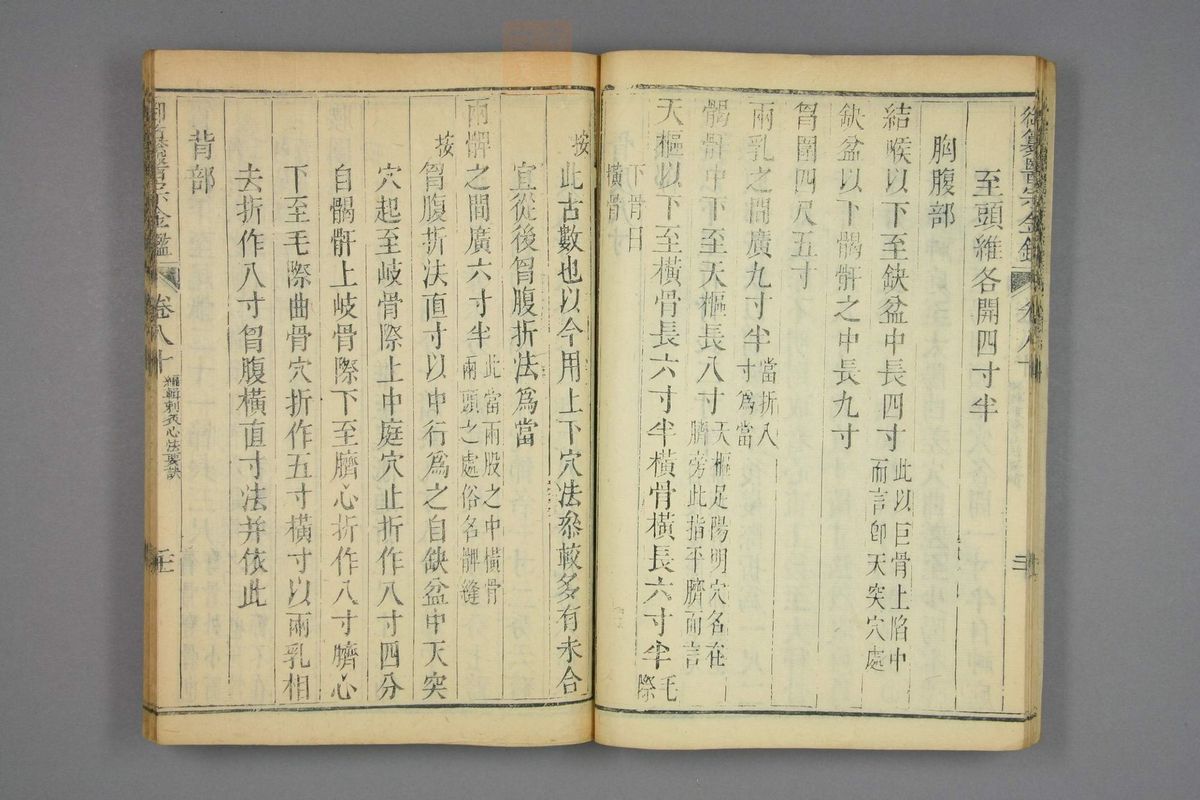 御纂醫宗金鑑 卷八十
至頭維各開四寸半
胸腹部
結喉以下至缺盆中長四寸此以巨骨上陷中
而言卽天突穴處
缺盆以下𩩲骬之中長九寸
胷圍四尺五寸
兩乳之間廣九寸半當折八
寸爲當
𩩲骬中下至天樞長八寸天樞足陽明穴名在
臍旁此指平臍而言
天樞以下至橫骨長六寸半橫骨橫長六寸半毛際
下骨曰
橫骨
按此古數也以今用上下穴法叅較多有未合
宜從後胷腹折法爲當
兩髀之間廣六寸半此當兩股之中橫骨
兩頭之處俗名髀縫
按胷腹折法直寸以中行爲之自缺盆中天突
穴起至岐骨際上中庭穴止折作八寸四分
自𩩲骬上岐骨際下至臍心折作八寸臍心
下至毛際曲骨穴折作五寸橫寸以兩乳相
去折作八寸胷腹橫直寸法并依此
背部
御纂醫宗金鑑 卷八十 編輯刺灸心法要訣